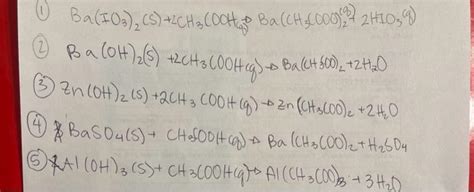 ① Ba(IO3)2(s)+2CH3COOH(g)→ Ba(CH3COO)2(g)+ 2HIO3(g)
② Ba(OH)2(s) +2CH3COOH(g)→ Ba(CH3COO)2+2H2O
③ Zn(OH)2(s)+2CH3COOH(g)→ Zn(CH3COO)2+2H2O
④ BaSO4(s)+ CH3COOH(g)→ Ba(CH3COO)2+H2SO4
⑤ Al(OH)3(s)+ CH3COOH(g)→ Al(CH3COO)3 + 3H2O